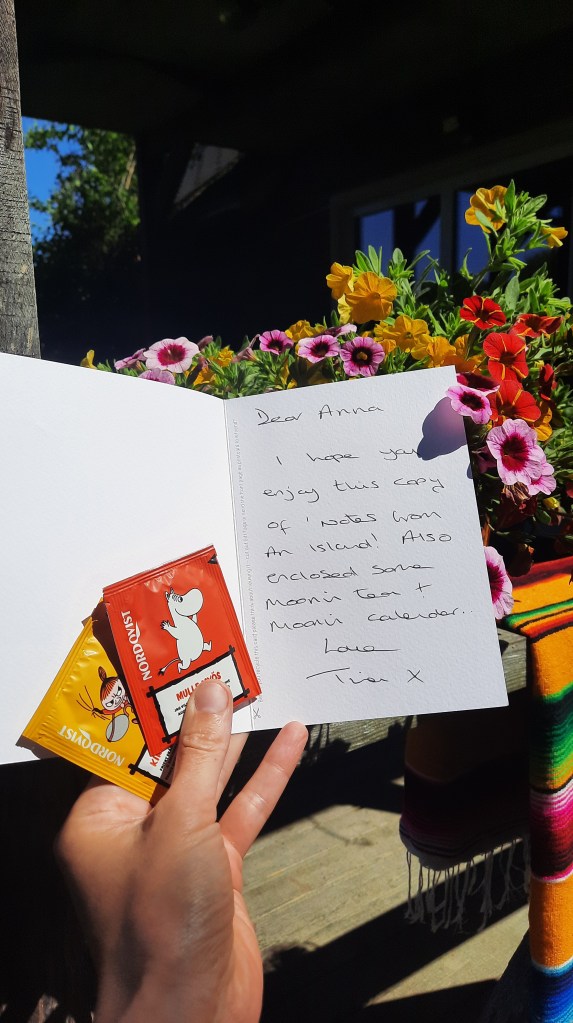 Dear Anna
I hope you
enjoy this copy
of 'Notes from
An Island! Also
enclosed some
Moomin tea +
Moomin calender..
Love
X
NORDQVIST
NORDQVIST